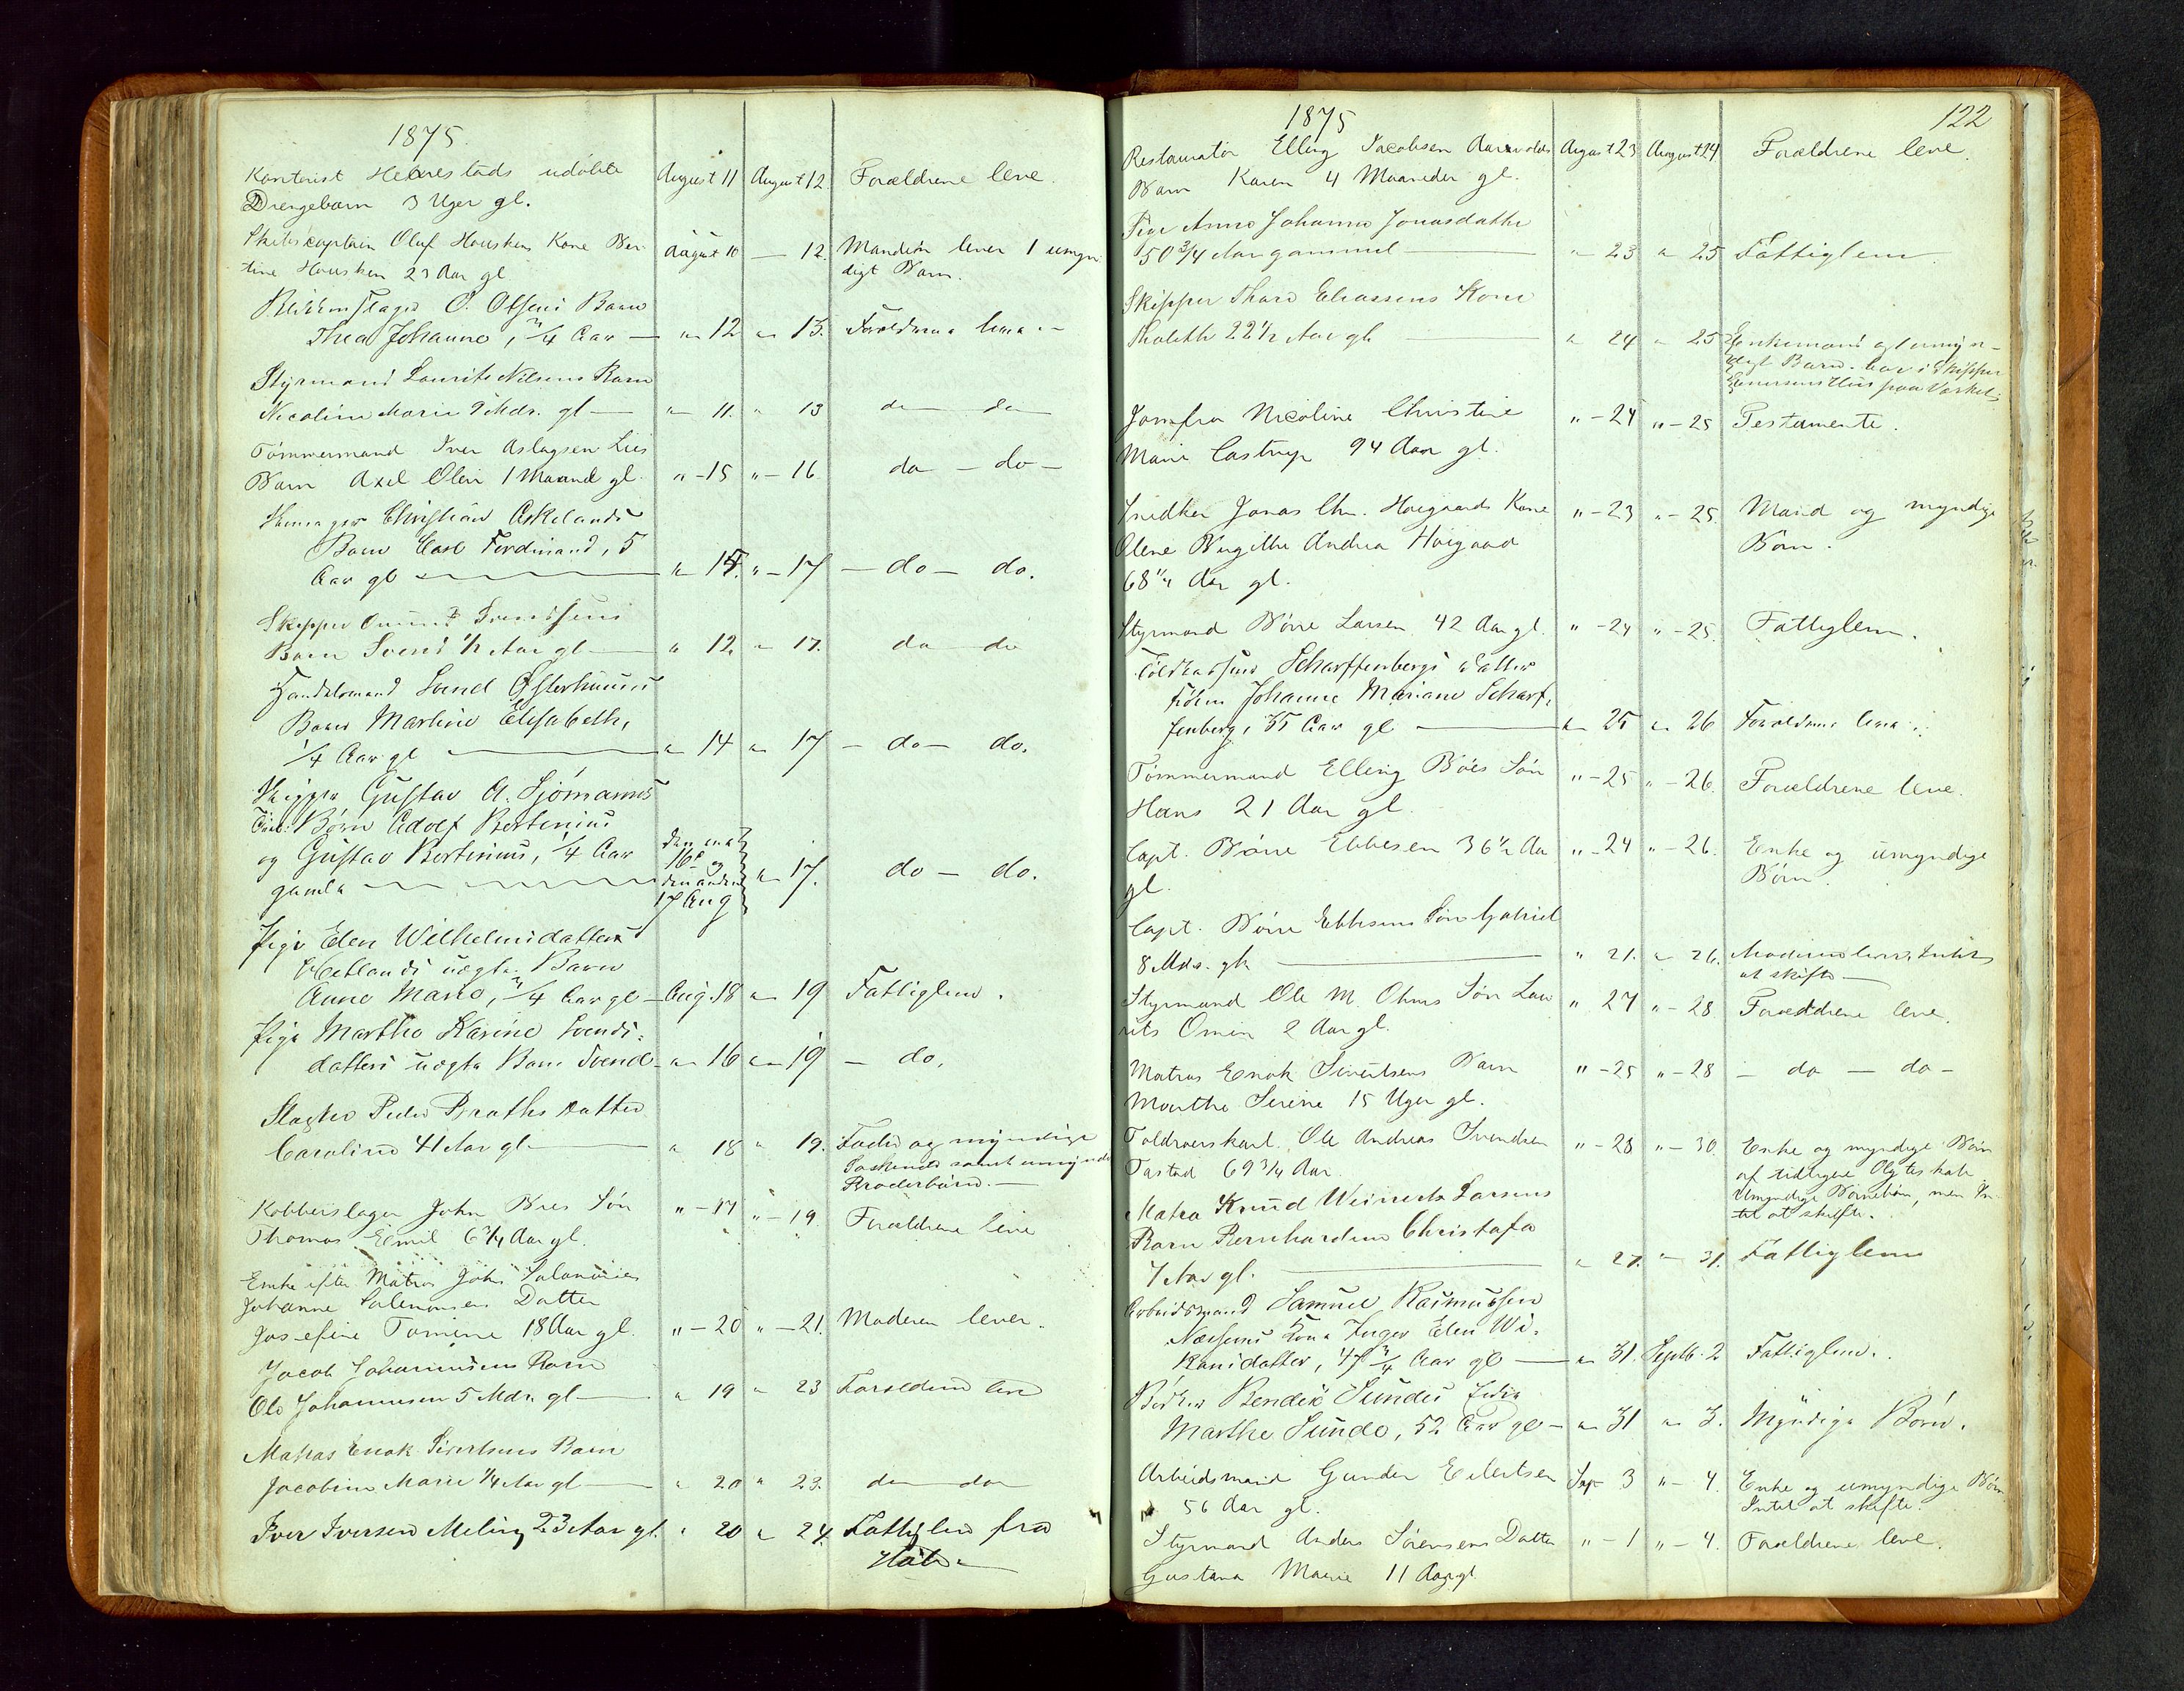 1875.
Kontorist Henrestads udøbte August 11 August 12. Forældrene leve.
Drengebarn 3 Uger gl.
Skibscaptain Oluf Houskens Kone Ber- August 10 — 12. Manden lever 1 umyn-
tine Housken 23 Aar gl digt Barn.
Blikkenslager O. Olsens Barn
Thea Johanne, 3/4 Aar — " 12 " 13. Forældrene leve.—
Styrmand Laurits Nilsens Barn
Nicoline Marie 9 Mdr. gl— " 11. " 13 do do
Tømmermand Iver Aslagsen Lies
Barn Axel Olin 1 Maaned gl. " -15 " -16 do - do -
Christian Askelands
Barn Carl Ferdinand, 5
Aar gl " 15. " -17 — do — do.
Skipper Omund Svendsens
Barn Svend 1/2 Aar gl— " 12. " 17. do do
Handelsmand Svend Østerhuus's
Barn Martine Elisabeth,
1/4 Aar gl " 14 " 17 — do — do.
Skipper Gustav A. Sjömanns
Tvil: Børn Adolf Bertinius
og Gustav Bertinius, 1/4 Aar den ene
gamle 16de og " 17. do — do.
den anden
17 Aug
Pige Elen Wilhelmsdatter
Hetlands uægte Barn
Anne Marie, 3/4 Aar gl — Aug. 18 " 19 Fattiglem.
Pige Marthe Karine Svends-
datters uægte Barn Svend " 16 " 19 — do.
Slagter Peder Braths Datter
Caroline 41 Aar gl— " 18 " 19. Fader og myndige
Søskende samt umynd
Broderbørn.—
Kobberslager John Bres Søn " -17 " -19. Forældrene leve
Thomas Emil 6 3/4 Aar gl.
Enke efter Matros John Salomonsen
Johanne Salomonsens Datter
Josefine Tomine 18 Aar gl. " -20 " -21. Moderen lever.
Jacob Johannesens Barn
Ole Johannesen 5 Mdr. gl— " 19 " 23 Forældrene leve
Matros Enok Sivertsens Barn
Jacobine Marie 1/4 Aar gl— " 20 " 23. do do
Iver Iversen Meling 23 Aar gl. " 20 " 24. Fattiglem fra
1875 122
Restauratør Elling Jacobsen Aarvolds August 23 August 24 Forældrene leve.
Barn Karen 4 Maaneder gl.
Pige Anne Johanne Jonasdatter
50 3/4 Aar gammel — " 23 " 25 Fattiglem.
Skipper Thard Eliassens Kone
Tholette 22 1/2 Aar gl — " 24 " 25 Enkemand og 1 umyn-
digt Barn. bor i Skipper
Jomfru Nicoline Christine " -24 " -25 Testamente.
Marie Castrup 94 Aar gl.
Snedker Jonas Chr. Høigaards Kone " -23 " -25. Mand og myndige
Olene Birgithe Andrea Høigaard Børn.
68 1/4 Aar gl.
Styrmand Børre Larsen 42 Aar gl. " -24 " -25. Fattiglem.
Toldkasserer Scharffenbergs Datter
Frøken Johanne Mariane Scharf-
fenberg, 35 Aar gl — " 25 " 26 Forældrene leve.
Tømmermand Elling Bøes Søn " -25 " -26. Forældrene leve.
Hans 21 Aar gl.
Capt. Børre Ebbesen 36 1/2 Aar " -24 " -26. Enke og umyndige
gl. Børn.
Capt. Børre Ebbesens Søn Gabriel
8 Mdr. gl. — " 21. " 26. Moderen lever, Intet
at skifte —
Styrmand Ole M. Olsens Søn Lau- " 27 " -28 Forældrene leve.
rits Omin 2 Aar gl.
Matros Enok Sivertsens Barn " -25 " -28 — do — do —
Marthe Serine 15 Uger gl.
Toldroerskarl Ole Andreas Svendsen " -28 " -30. Enke og myndige Børn
Tasted 69 3/4 Aar af tidligere Ægteskab
Umyndige Børnebørn, men In-
tet at skifte.
Matros Knud Weinert Larsens
Barn Bernhardine Christofa
7 Aar gl. — " 27. " 31. Fattiglem
Arbeidsmand Samuel Rasmussen
Næssens Kone Inger Elen Wi-
kansdatter, 47 3/4 Aar gl — " 31. Septb. 2 Fattiglem.
Bødker Bendix Sundes Enke
Marthe Sunde, 52 Aar gl — " 31 " 3. Myndige Børn.
Arbeidsmand Gunder Eilertsen Sep 3 " -4. Enke og umyndige Børn
56 Aar gl. Intet at skifte.
Styrmand Anders Sørensens Datter " -1 " -4. Forældrene leve.
Gustava Marie 11 Aar gl